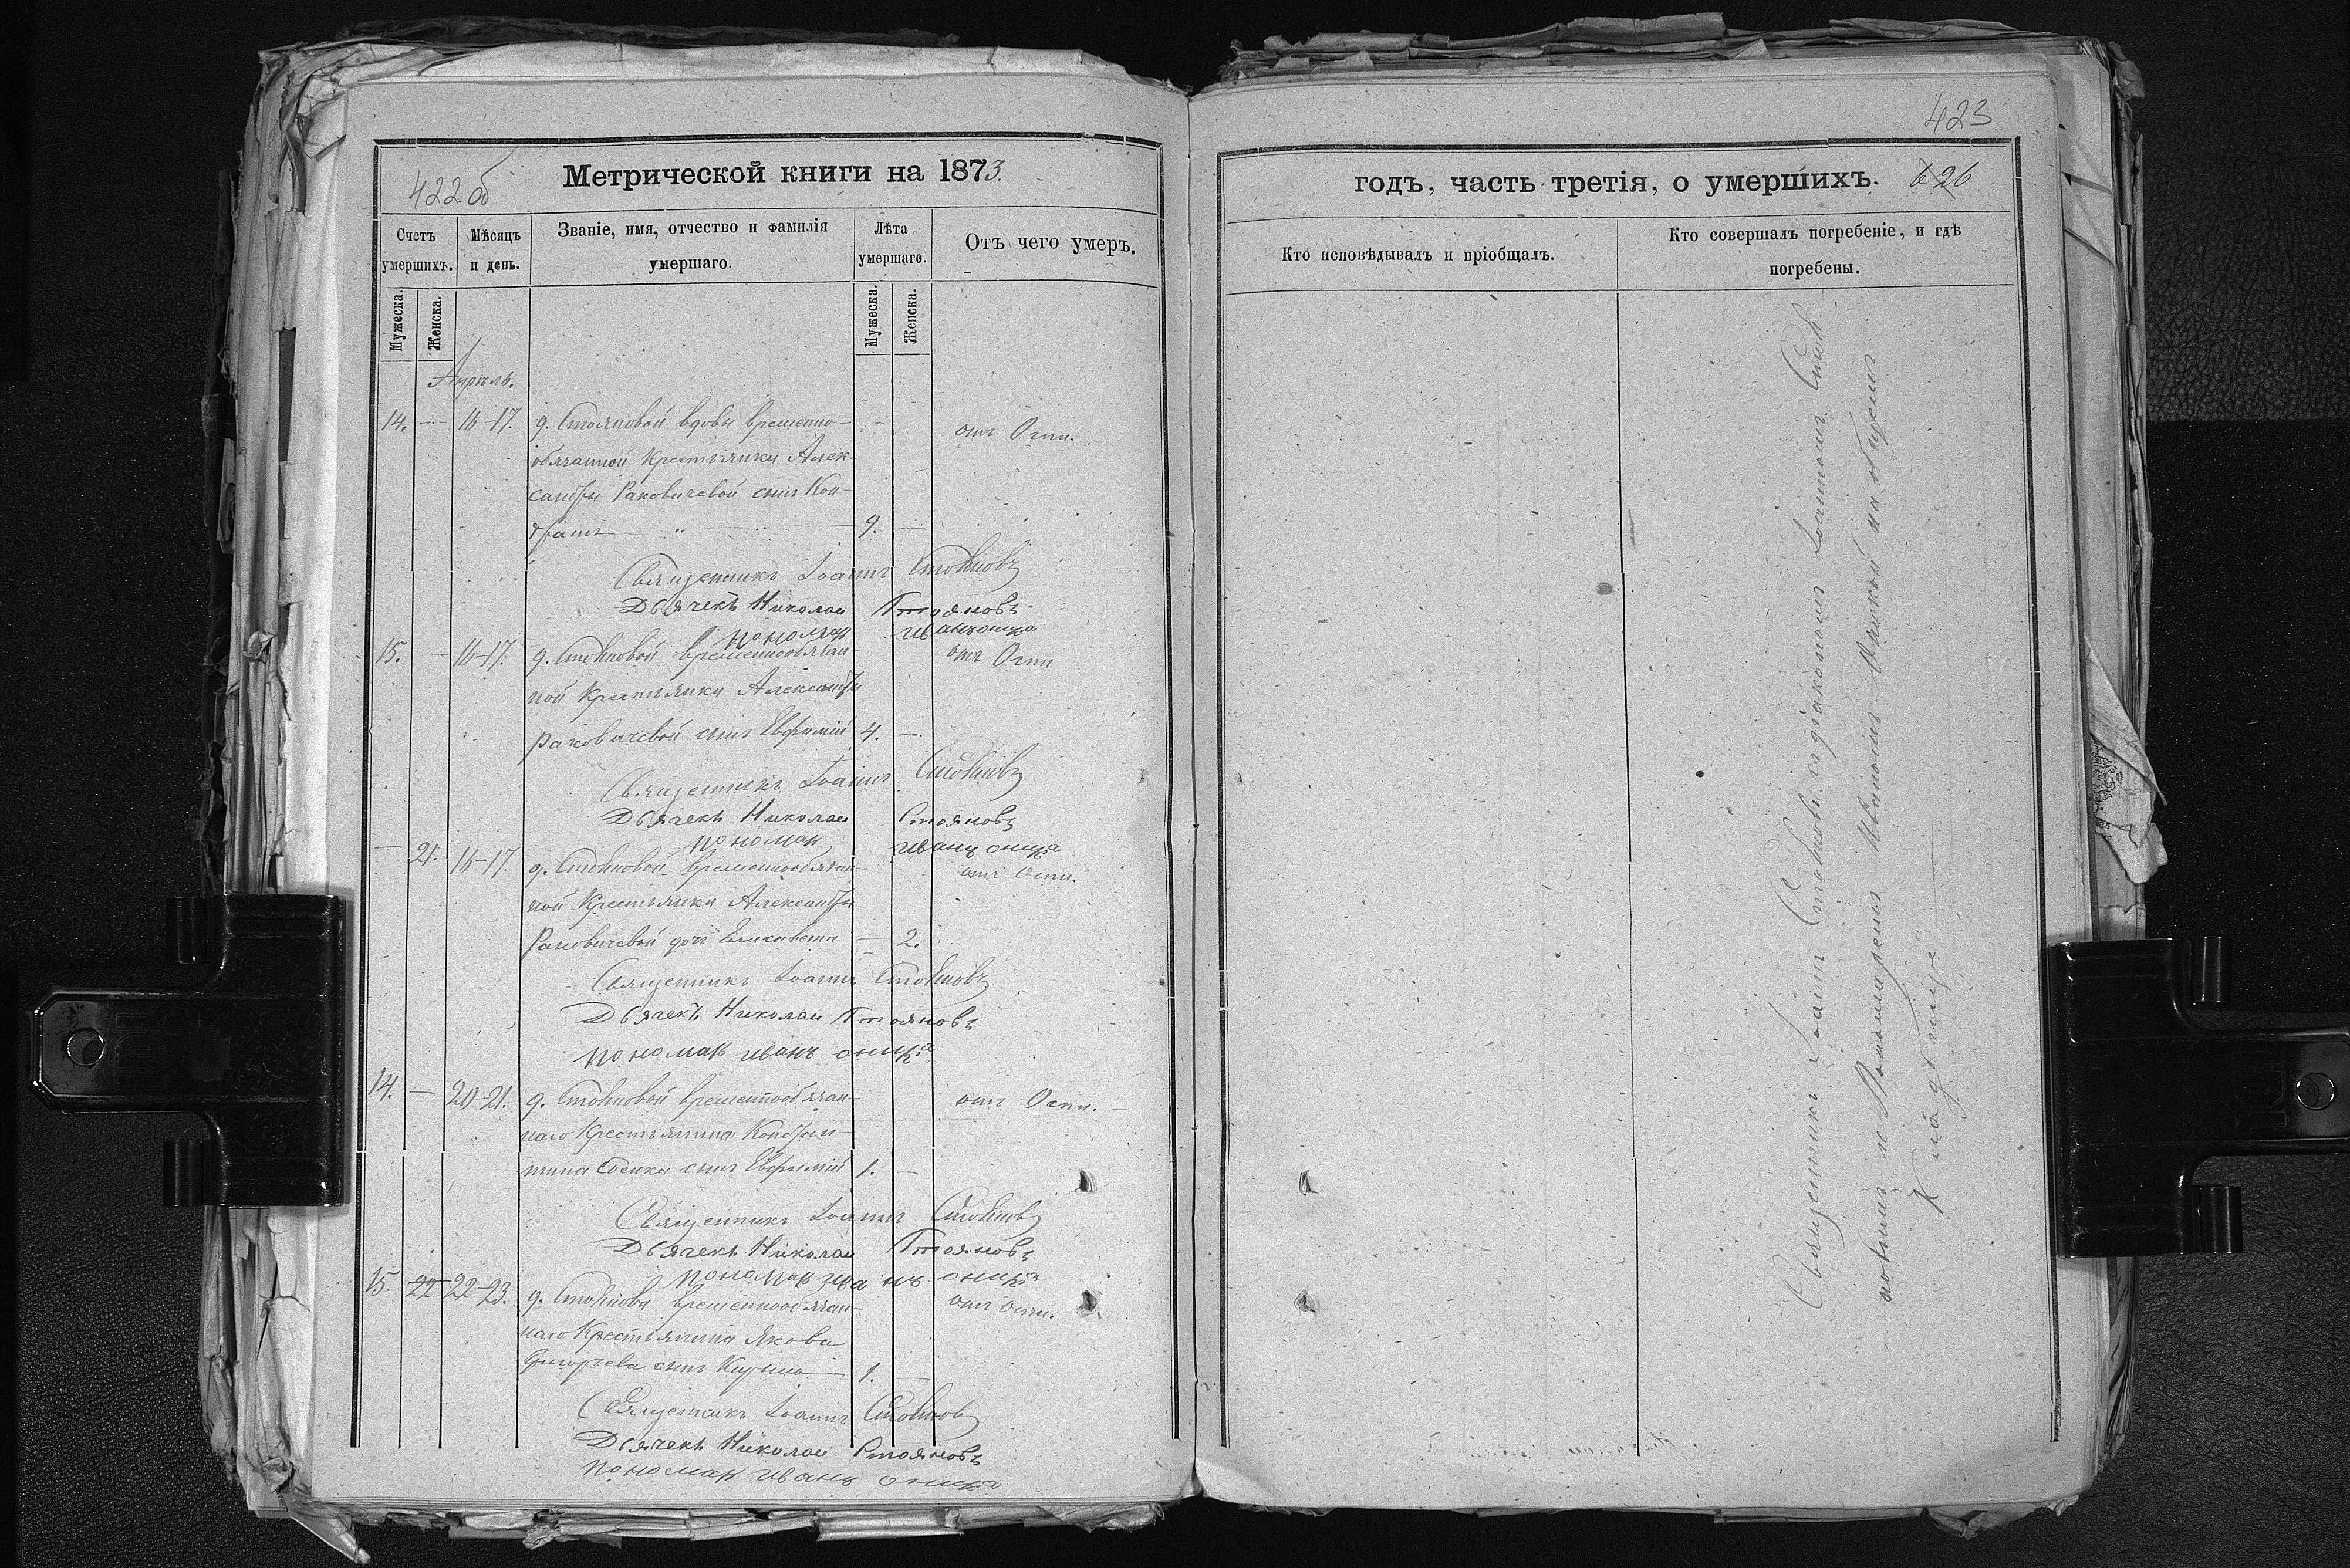 422 об
Метрической книги на 1873.
Счетъ умершихъ.
Мѣсяцъ и день.
Званіе, имя, отчество и фамилія умершаго.
Лѣта умершаго.
Отъ чего умеръ.
Мужеска.
Женска.
Мужеска.
Женска.
Апрѣль.
14. — 16-17. д. Стояновой вдовы временно- — отъ Оспи.
обязанной Крестьянки Алек-
сандры Раковичевой сынъ Кон-
дратъ — 9. —
Священникъ Іоаннъ Стояновъ
Дьячекъ Николаи Стояновъ
пономар иванъ оница
15. — 16-17. д. Стояновой временнообязан- отъ Оспи
ной Крестьянки Александры
Раковичевой сынъ Евфимій 4. —
Священникъ Іоаннъ Стояновъ
Дьячекъ Николаи Стояновъ
пономар иванъ оница
— 21. 16-17. д. Стояновой временнообязан- отъ Оспи.
ной Крестьянки Александры
Раковичевой дочь Елисавета — 2.
Священникъ Іоаннъ Стояновъ
Дьячекъ Николаи Стояновъ
пономар иванъ оница
14. — 20-21. д. Стояновой временнообязан- отъ Оспи.
наго Крестьянина Констан-
тина сынъ Евфимій 1. —
Священникъ Іоаннъ Стояновъ
Дьячекъ Николаи Стояновъ
пономар иванъ оница
15. 22 22-23. д. Стоянова временнообязан- отъ оспи.
наго Крестьянина Якова
Григорьева сынъ 1. —
Священникъ Іоаннъ Стояновъ
Дьячекъ Николаи Стояновъ
пономар иванъ оница
423
годъ, часть третія, о умершихъ. 626
Кто исповѣдывалъ и пріобщалъ.
Кто совершалъ погребеніе, и гдѣ погребены.
Священникъ Іоаннъ Стояновъ съ діакономъ Іоанномъ
и Пономаремъ Иваномъ Оникой на общемъ
Кладбищѣ —